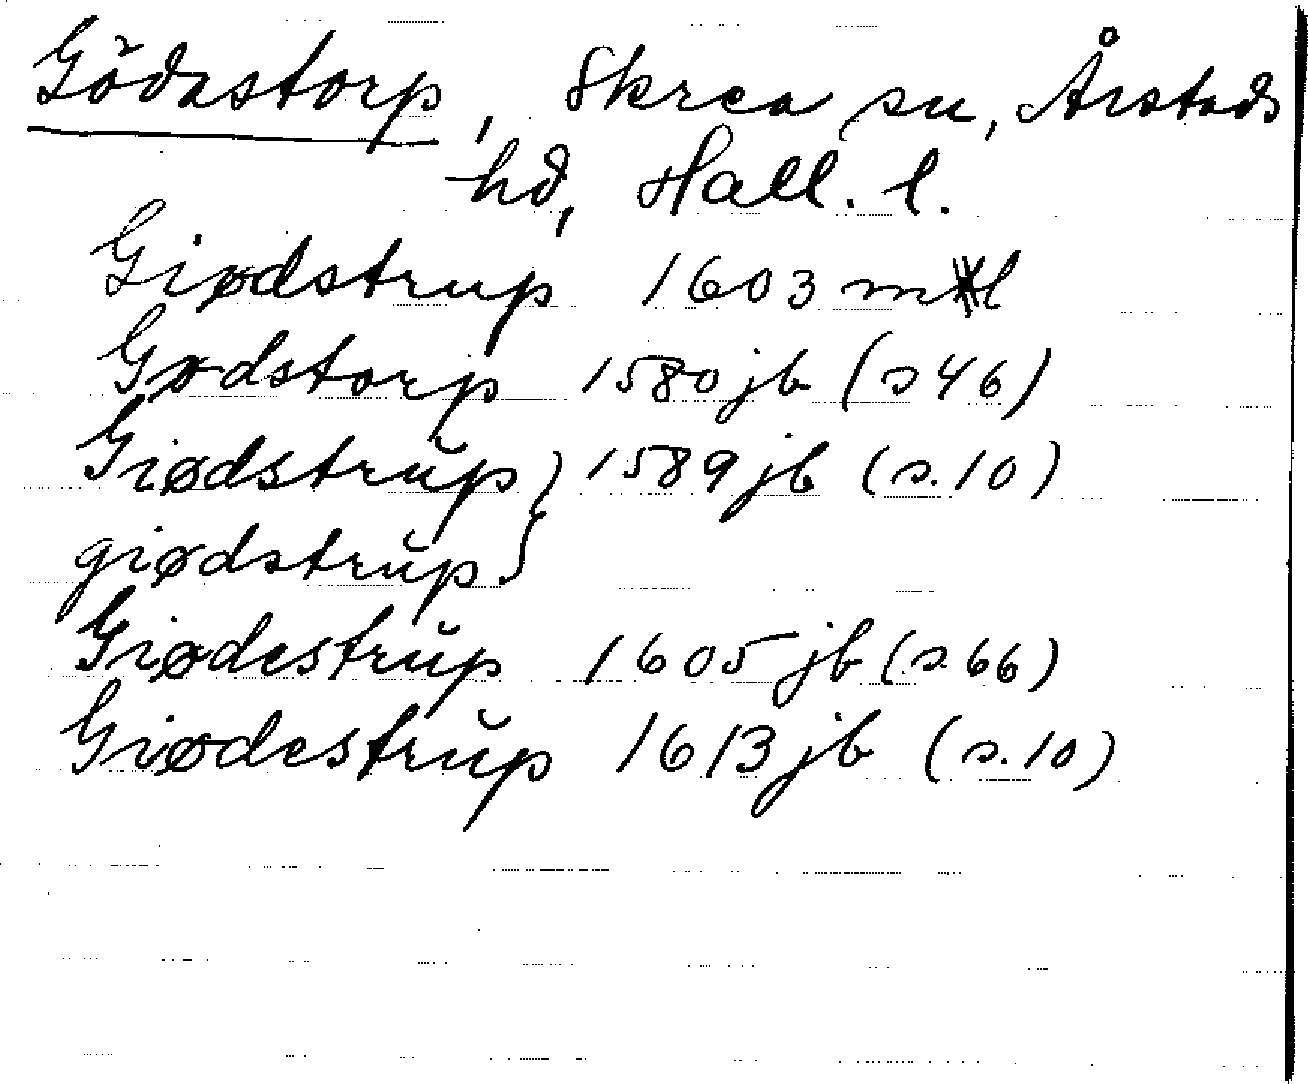 Gödastorp, Skrea sn, Årstads
hd, Hall. l.
Giødstrup 1603 ml
Gødstorp 1580 jb (s 46)
Giødstrŭp } 1589 jb (s. 10)
giødstrŭp
Giødestrŭp 1605 jb (s. 66)
Giødestrŭp 1613 jb (s. 10)